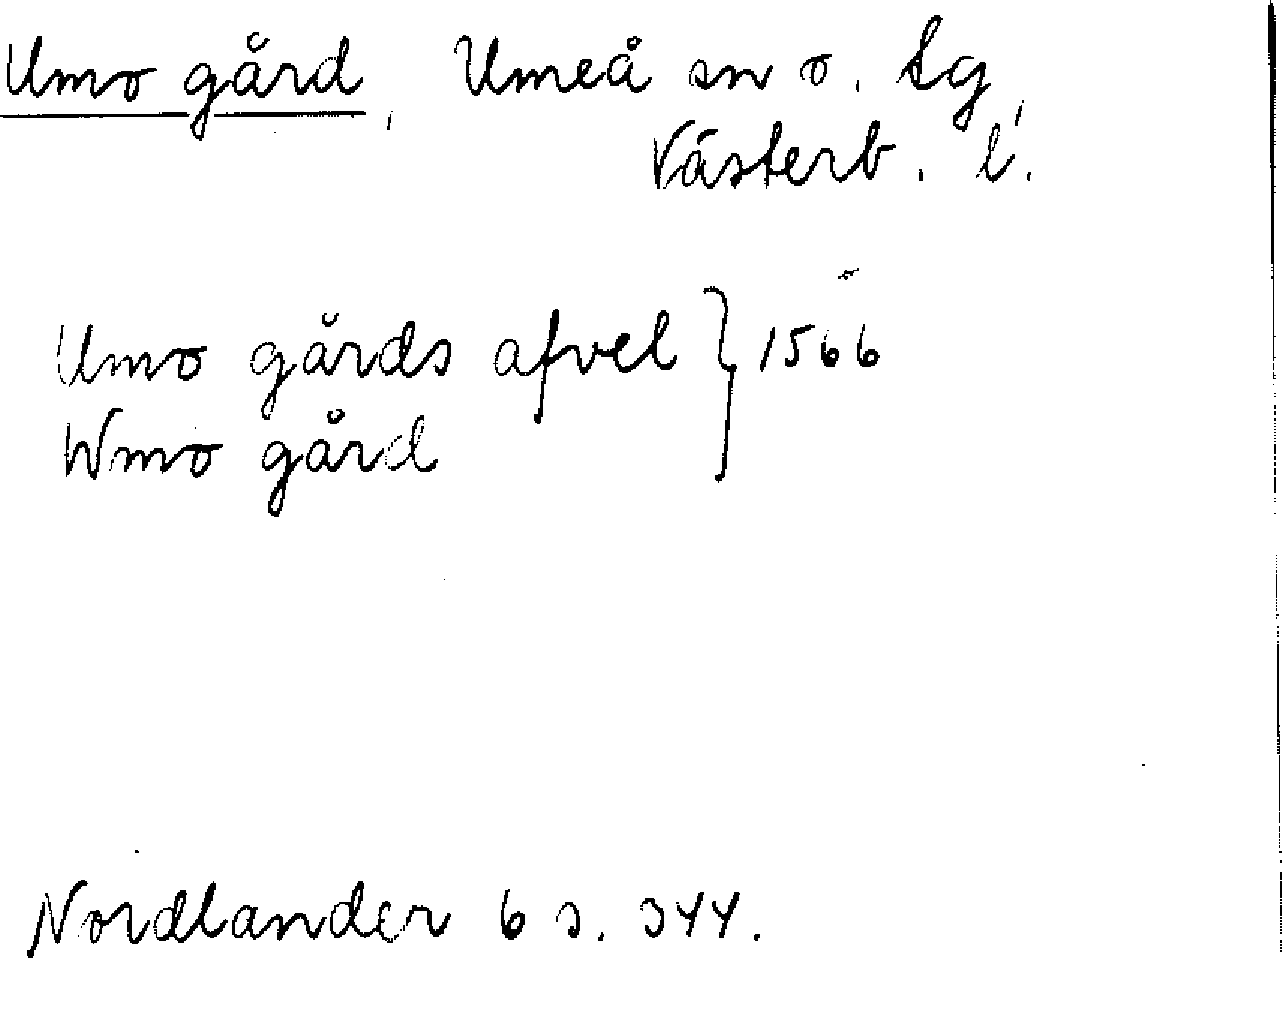 Umo gård, Umeå sn o. tg,
Västerb. l.
Umo gårds afvel } 1566
Wmo gård
Nordlander 6 s. 344.